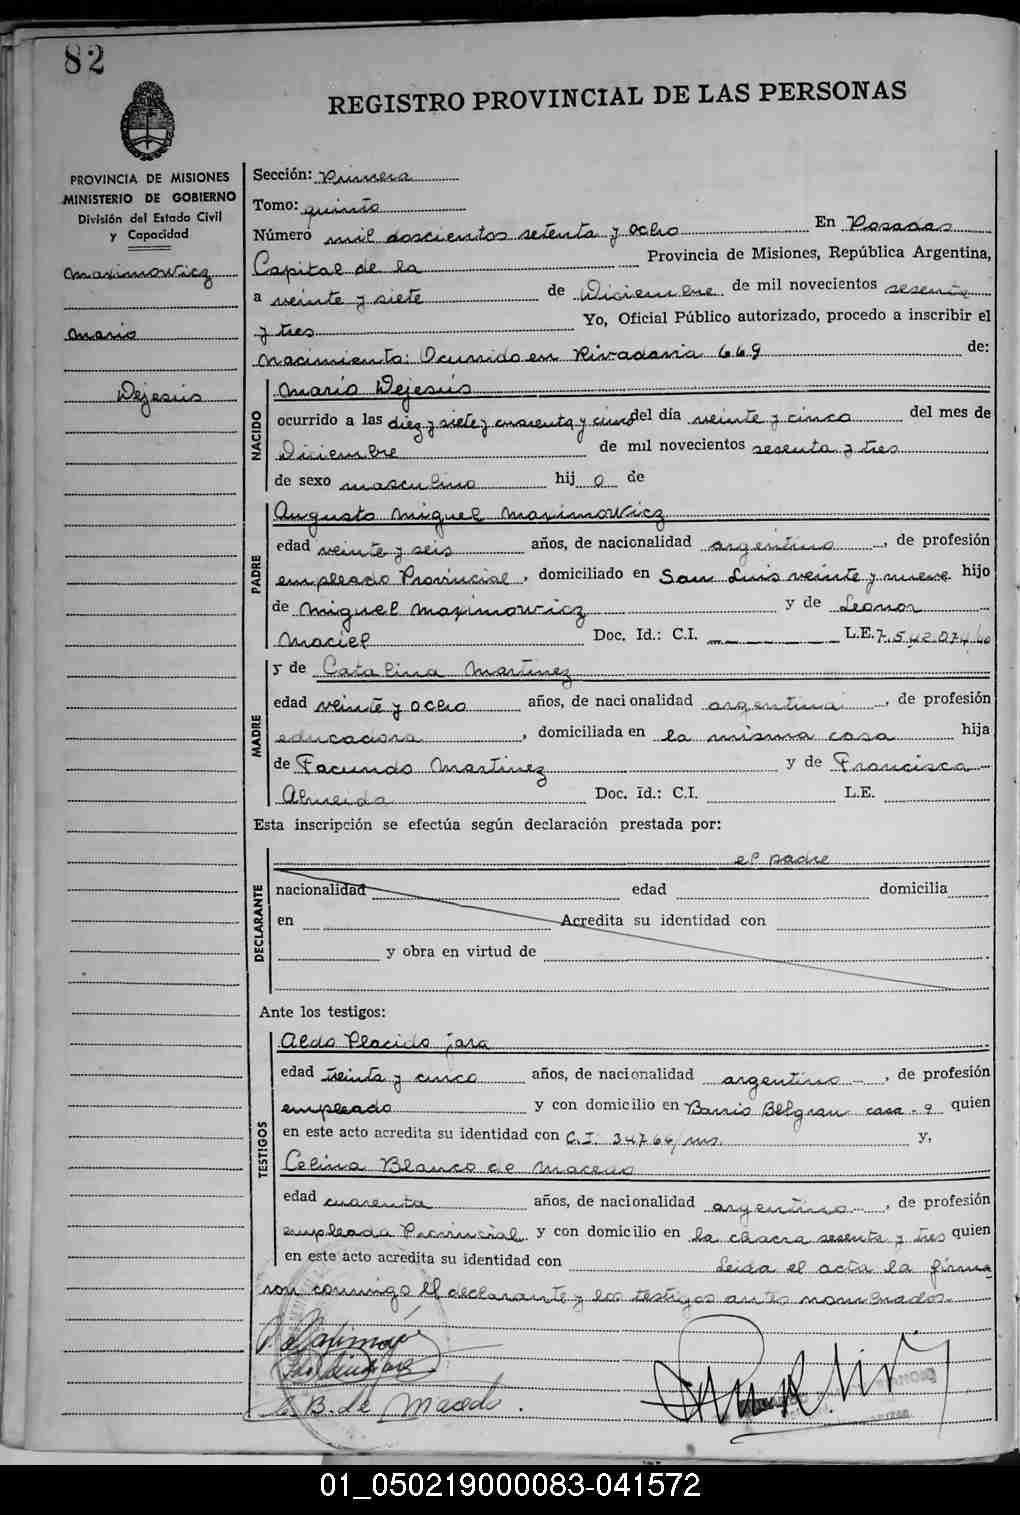 82
REGISTRO PROVINCIAL DE LAS PERSONAS
PROVINCIA DE MISIONES
MINISTERIO DE GOBIERNO
División del Estado Civil
y Capacidad
Maximowicz
Mario
Dejesús
Sección: Primera
Tomo: quinto
Número mil doscientos setenta y ocho En Posadas
Capital de la Provincia de Misiones, República Argentina,
a veinte y siete de Diciembre de mil novecientos sesenta
y tres Yo, Oficial Público autorizado, procedo a inscribir el
Nacimiento: Ocurrido en Rivadavia 669 de:
NACIDO
Mario Dejesús
ocurrido a las diez y siete y cuarenta y cinco del día veinte y cinco del mes de
Diciembre de mil novecientos sesenta y tres
de sexo masculino hij o de
PADRE
Augusto Miguel Maximowicz
edad veinte y seis años, de nacionalidad argentino, de profesión
empleado Provincial, domiciliado en San Luis veinte y nueve hijo
de Miguel Maximowicz y de Leonor
Maciel Doc. Id.: C.I. L.E. 7.542.074
MADRE
y de Catalina Martinez
edad veinte y ocho años, de nacionalidad argentina, de profesión
educadora, domiciliada en la misma casa hija
de Facundo Martinez y de Francisca
Almeida Doc. Id.: C.I. L.E.
Esta inscripción se efectúa según declaración prestada por:
DECLARANTE
el padre
nacionalidad edad domicilia
en Acredita su identidad con
y obra en virtud de
Ante los testigos:
TESTIGOS
Aldo Placido Jara
edad treinta y cinco años, de nacionalidad argentino, de profesión
empleado y con domicilio en Barrio Belgrano casa 9 quien
en este acto acredita su identidad con C.I. 34766/ms. y,
Celina Blanco de Macedo
edad cuarenta años, de nacionalidad argentino, de profesión
empleada Provincial y con domicilio en la chacra sesenta y tres quien
en este acto acredita su identidad con Leida el acta la firma
ron conmigo el declarante y los testigos antes nombrados.
B. de Macedo.
01_050219000083-041572